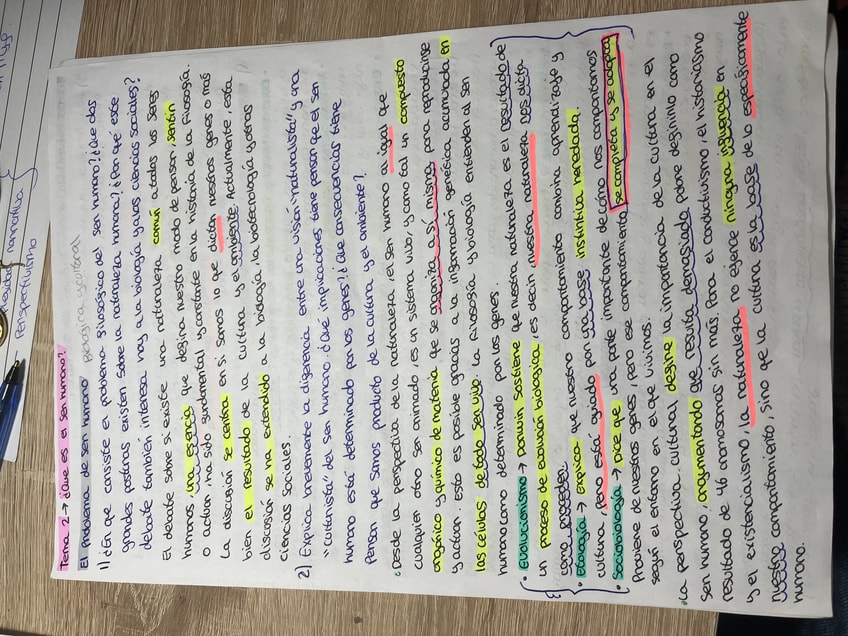 Tema 2 → ¿Que es el ser humano?
El problema de ser humano Biológica y cultural
1) ¿En que consiste el problema filosófico del ser humano? ¿Que dos
grandes posturas existen sobre la naturaleza humana? ¿Por qué este
debate también interesa hoy a la biología y a las ciencias sociales?
El debate sobre si existe una naturaleza común a todos los seres
humanos, una esencia que defina nuestro modo de pensar, sentir
o actuar, ha sido fundamental y constante en la historia de la filosofía.
La discusión se centra en si somos lo que dictan nuestros genes o más
bien el resultado de la cultura y el ambiente. Actualmente, esta
discusión se ha extendido a la biología, la biotecnología y otras
ciencias sociales.
2) Explica brevemente la diferencia entre una visión "naturalista" y una
"culturalista" del ser humano. ¿Qué implicaciones tiene pensar que el ser
humano está determinado por los genes? ¿Que consecuencias tiene
pensar que somos producto de la cultura y el ambiente?
• Desde la perspectiva de la naturaleza, el ser humano al igual que
cualquier otro ser animado, es un sistema vivo, y como tal un compuesto
orgánico y químico de materia que se organiza a sí misma para reproducirse
y actuar. esto es posible gracias a la información genética acumulada en
las células de todo ser vivo. La filosofía y biología entienden al ser
humano como determinado por los genes.
• Evolucionismo → Darwin sostiene que nuestra naturaleza es el resultado de
un proceso de evolución biológica, es decir, nuestra naturaleza nos dicta
como proceder.
• Etología → explica que nuestro comportamiento combina aprendizaje y
cultura, pero está guiado por una base instintiva heredada.
• Sociobiología dice que una parte importante de cómo nos comportamos
proviene de nuestros genes, pero ese comportamiento se completa y se adapta
según el entorno en el que vivimos.
• La perspectiva cultural define la importancia de la cultura en el
ser humano, argumentando que resulta demasiado pobre definirlo como
resultado de 46 cromosomas sin más. Para el conductivismo, el historiasismo
y el existencialismo, la naturaleza no ejerce ninguna influencia en
nuestro comportamiento, sino que la cultura es la base de lo específicamente
humano.
narrativa
Perspectivismo